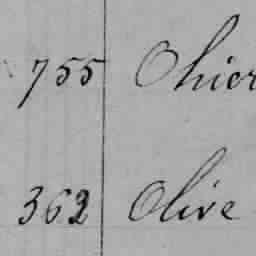 755 Ohior
362 Olive